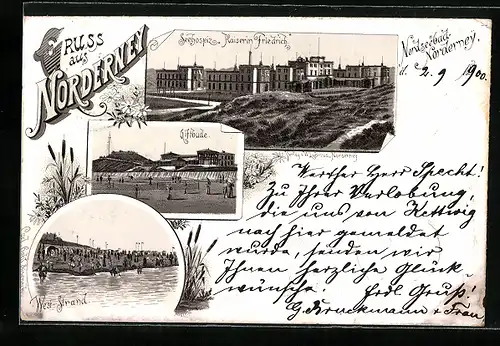 Gruss
aus
Norderney
Seehospiz „Kaiserin Friedrich"
Nordseebad
Norderney,
d. 2. 9 1900.
Giftbude.
West-Strand.
Werther Herr Specht!
Zu Ihrer Verlobung,
die uns von Kettwig
nach hier gemeldet
wurde, senden wir
Ihnen herzliche Glück-
wünsche! Frdl Gruß!
G. Bruckmann + Frau